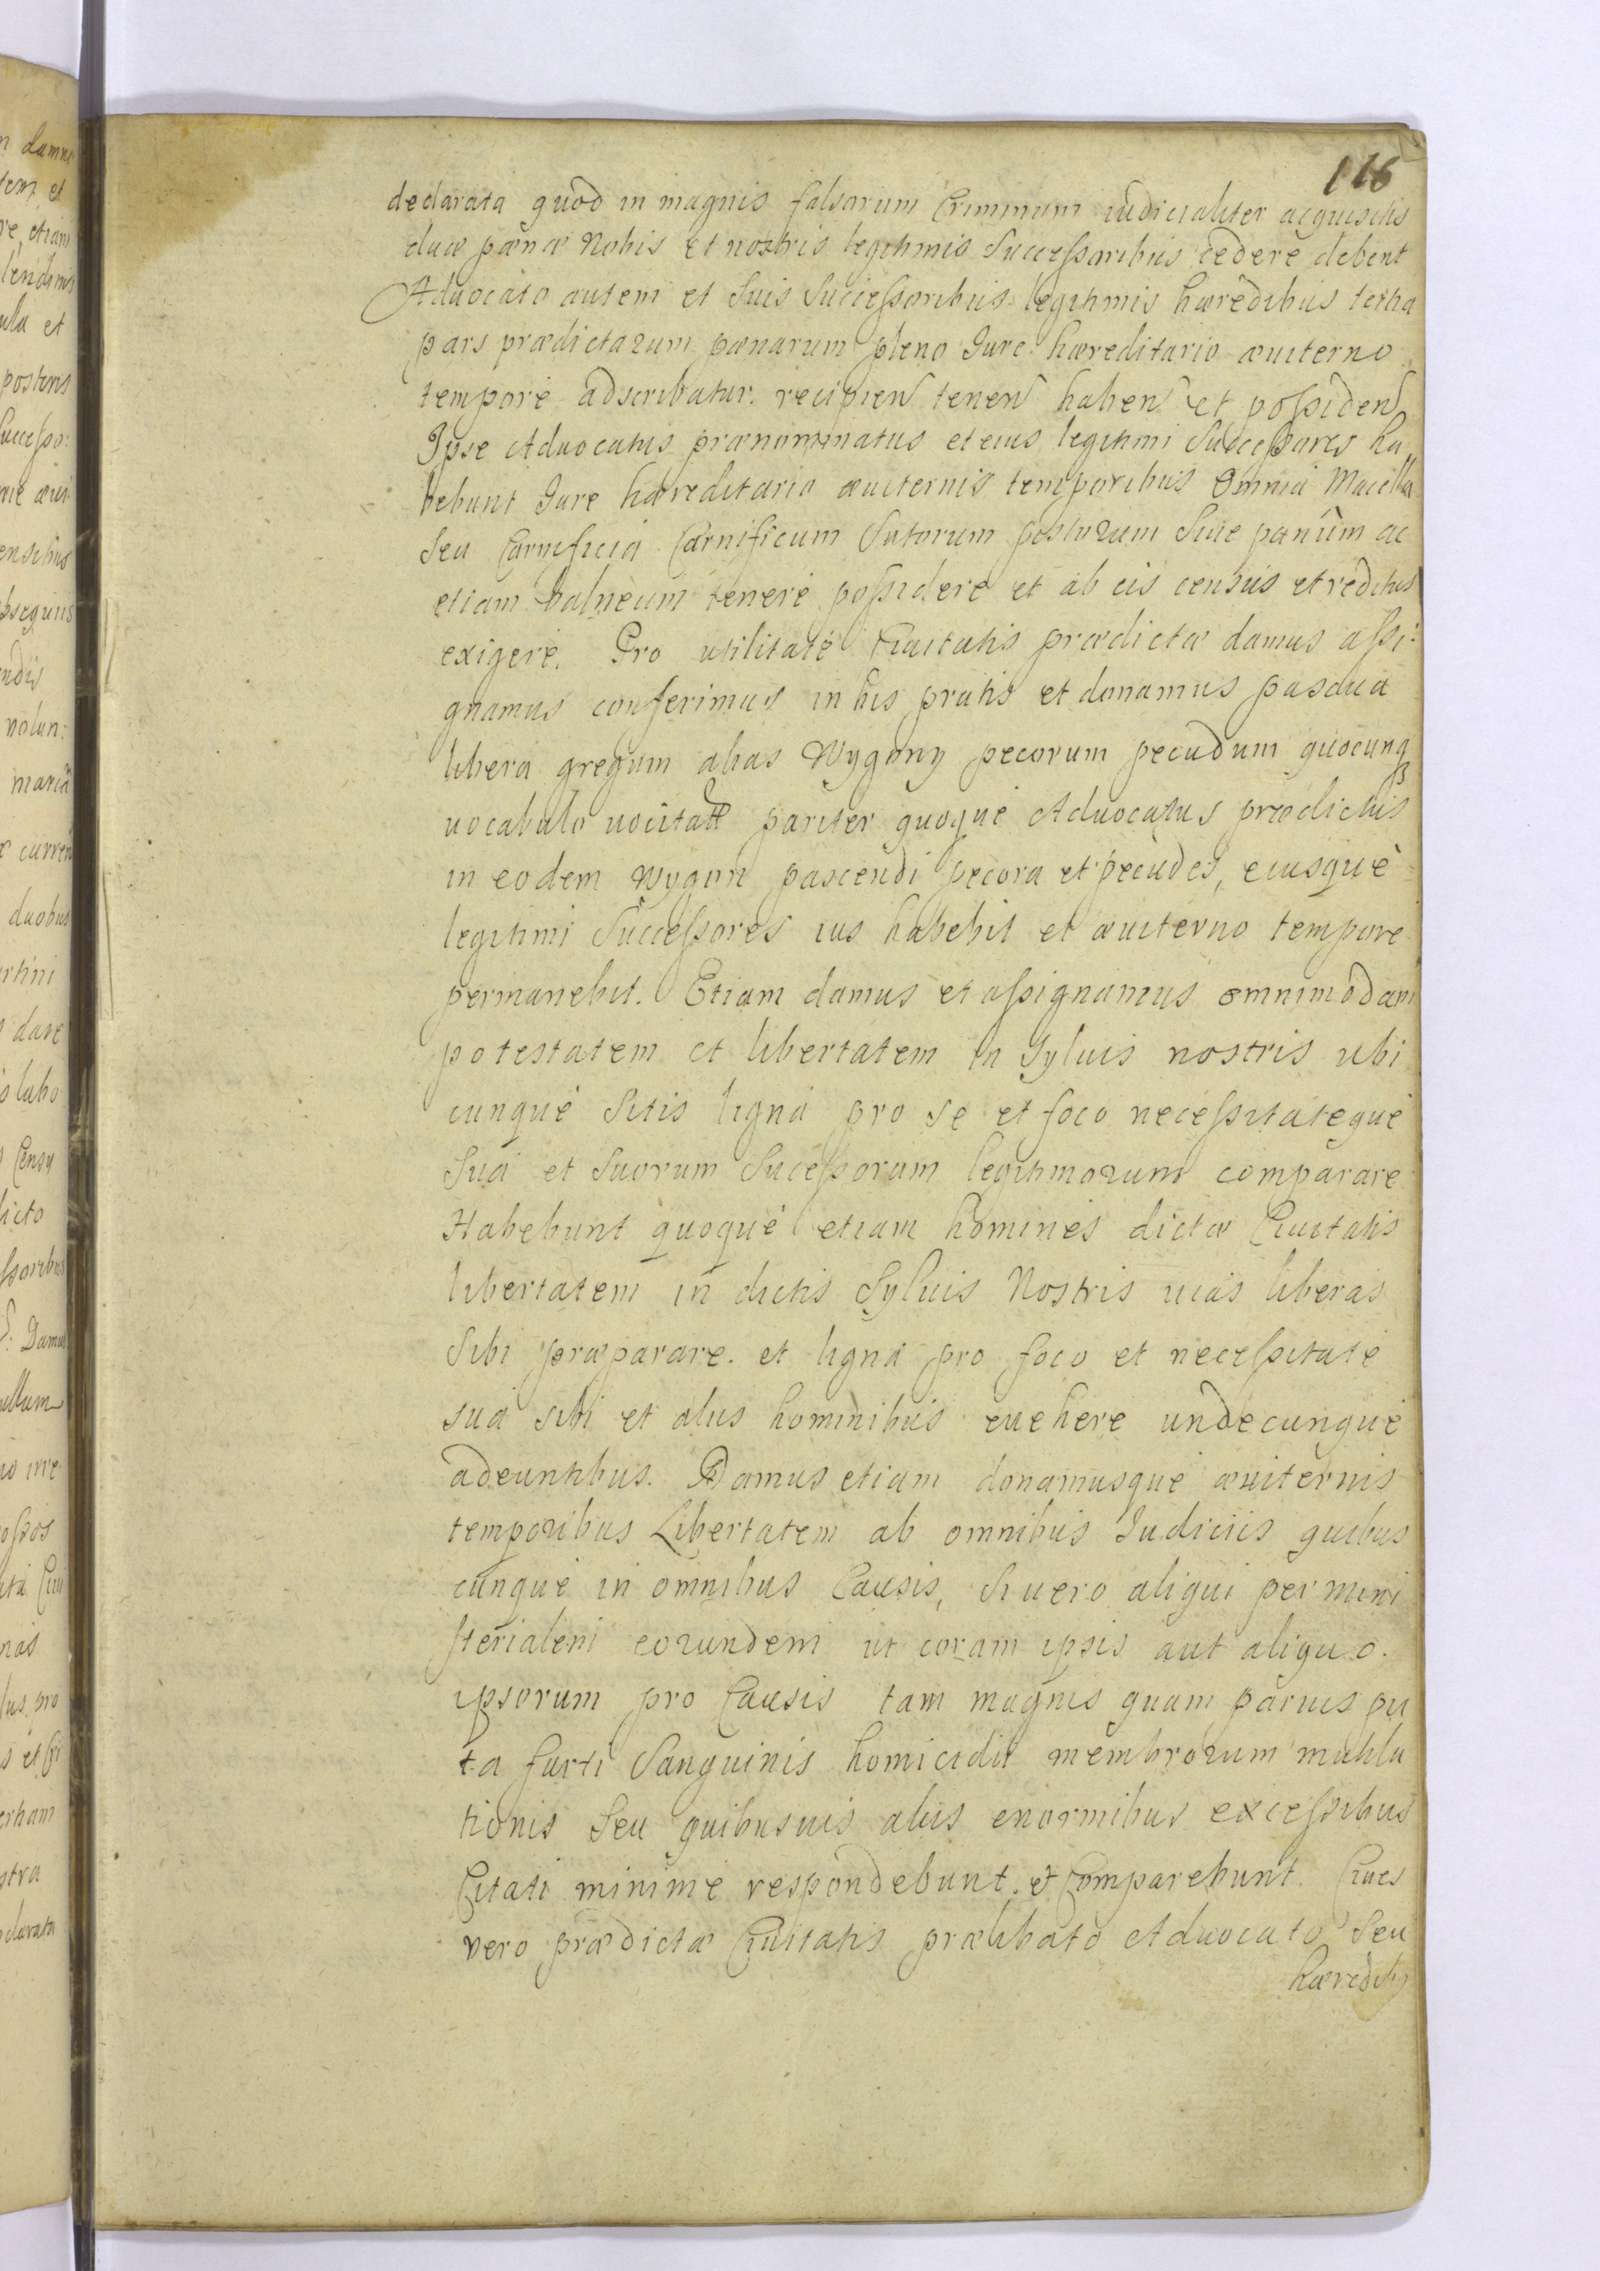 116
declarata quod in magnis falsarum Criminum iudicialiter acquisitis
duæ pænæ Nobis et nostris legitimis Successoribus cedere debent
Aduocato autem et Suis Successoribus legitimis hæredibus tertia
pars prædictarum pænarum pleno Jure hæreditario æuiterno
tempore adscribatur. recipien tenen haben et possiden
Ipse Aduocatus prænominatus et eius legitimi Successores ha
bebunt Jure hæreditario æuiternis temporibus Omnia Macella
Seu Carnificia Carnificum Sutorum pistorum Siue panum ac
etiam balneum tenere possidere et ab eis census et reditus
exigere. Pro utilitate Ciuitatis prædictæ damus assi:
gnamus conferimus in his pratis et donamus pascua
libera gregum alias Wygony pecorum pecudum quocunq
uocabulo uocitatt pariter quoque Aduocatus prædictus
in eodem Wygon pascendi pecora et pecudes, eiusque
legitimi Successores ius habebit et æuiterno tempore
permanebit. Etiam damus et assignamus omnimodam
potestatem et libertatem in Syluis nostris ubi
cunque Sitis ligna pro se et foco necessitateque
Sua et Suorum Sucessorum legitimorum comparare
Habebunt quoque etiam homines dictæ Ciuitatis
libertatem in dictis Syluis Nostris uias liberas
Sibi præparare. et ligna pro foco et necessitate
sua sibi et aliis hominibus euehere undecunque
adeuntibus. Damus etiam donamusque æuiternis
temporibus Libertatem ab omnibus Judiciis quibus
cunque in omnibus Causis, Si uero aliqui per mini
sterialem eorundem ut coram ipsis aut aliquo.
ipsorum pro Causis tam magnis quam paruis pu
ta furti Sanguinis homicidii membrorum mutila
tionis Seu quibusuis aliis enormibus excessibus
Citati minime respondebunt. et Comparebunt. Ciues
vero prædictæ Ciuitatis prælibato Aduocato Seu
hæredib9